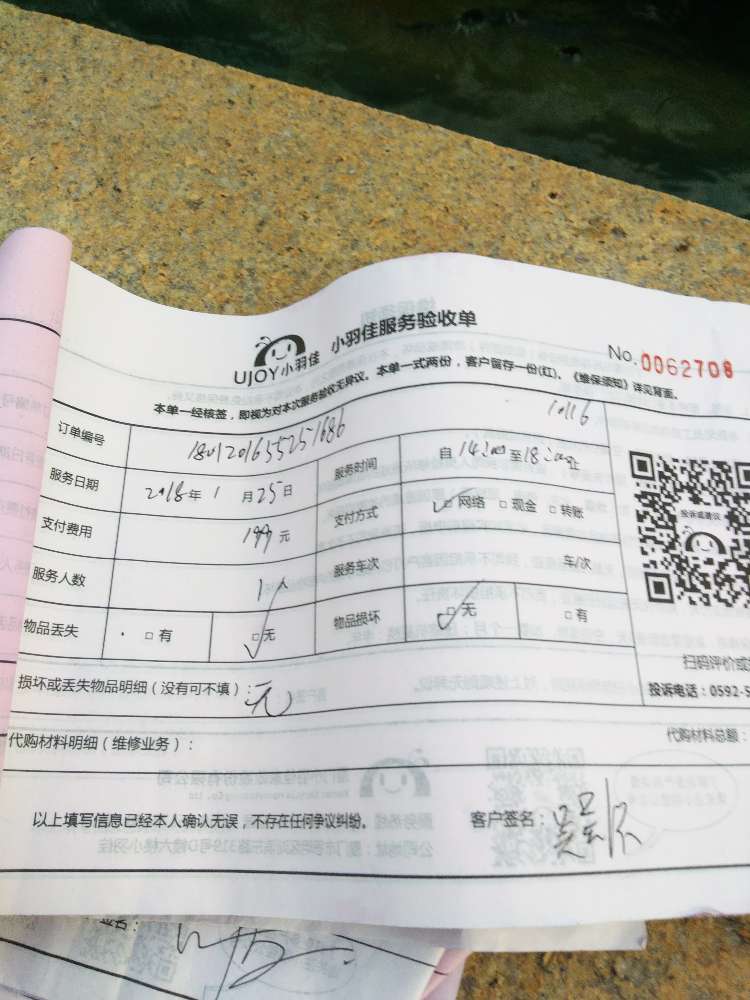 UJOY小羽佳 小羽佳服务验收单
No.0062708
本单一经核签，即视为对本次服务验收无异议。本单一式两份，客户留存一份(红)。《维保须知》详见背面。
订单编号 1801201655251686
服务日期 2018年1月25日 服务时间 自14:00至18:00止
支付费用 199元 支付方式 □网络 □现金 □转账
服务人数 1 服务车次 车/次
物品丢失 □有 □无 物品损坏 □无 □有
投诉或建议
扫码评价或
损坏或丢失物品明细（没有可不填）：无
投诉电话：0592-5
代购材料明细（维修业务）：
代购材料总额：
以上填写信息已经本人确认无误，不存在任何争议纠纷。 客户签名：
签名：